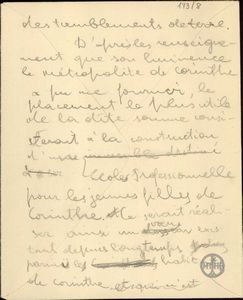 193/8
des tremblements de terre.
D'après les renseigne-
ment que son Eminence
le métropolite de Corinthe
a pu me fournir, le
placement le plus utile
de la dite somme consis-
terait à la construction
d'une
Ecole Professionnelle
pour les jeunes filles de
Corinthe. Il serait réali-
ser ainsi un
tant depuis longtemps
parmi les
de Corinthe, et qui